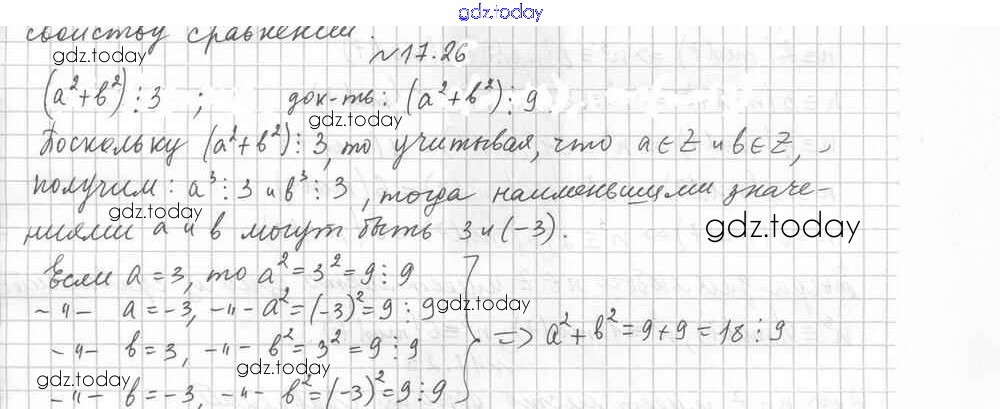 gdz.today
свойству сравнений.
gdz.today
№17.26
(a²+b²)⋮3 ; док-ть: (a²+b²)⋮9
gdz.today
Поскольку (a²+b²)⋮3, то учитывая, что a∈Z и b∈Z,
получим: a³⋮3 и b³⋮3, тогда наименьшими значе-
gdz.today
ниями a и b могут быть 3 и (-3).
gdz.today
Если a=3, то a²=3²=9⋮9
-"- a=-3, -"- a²=(-3)²=9⋮9
gdz.today
-"- b=3, -"- b²=3²=9⋮9
=> a²+b²=9+9=18⋮9
gdz.today
gdz.today
-"- b=-3, -"- b²=(-3)²=9⋮9